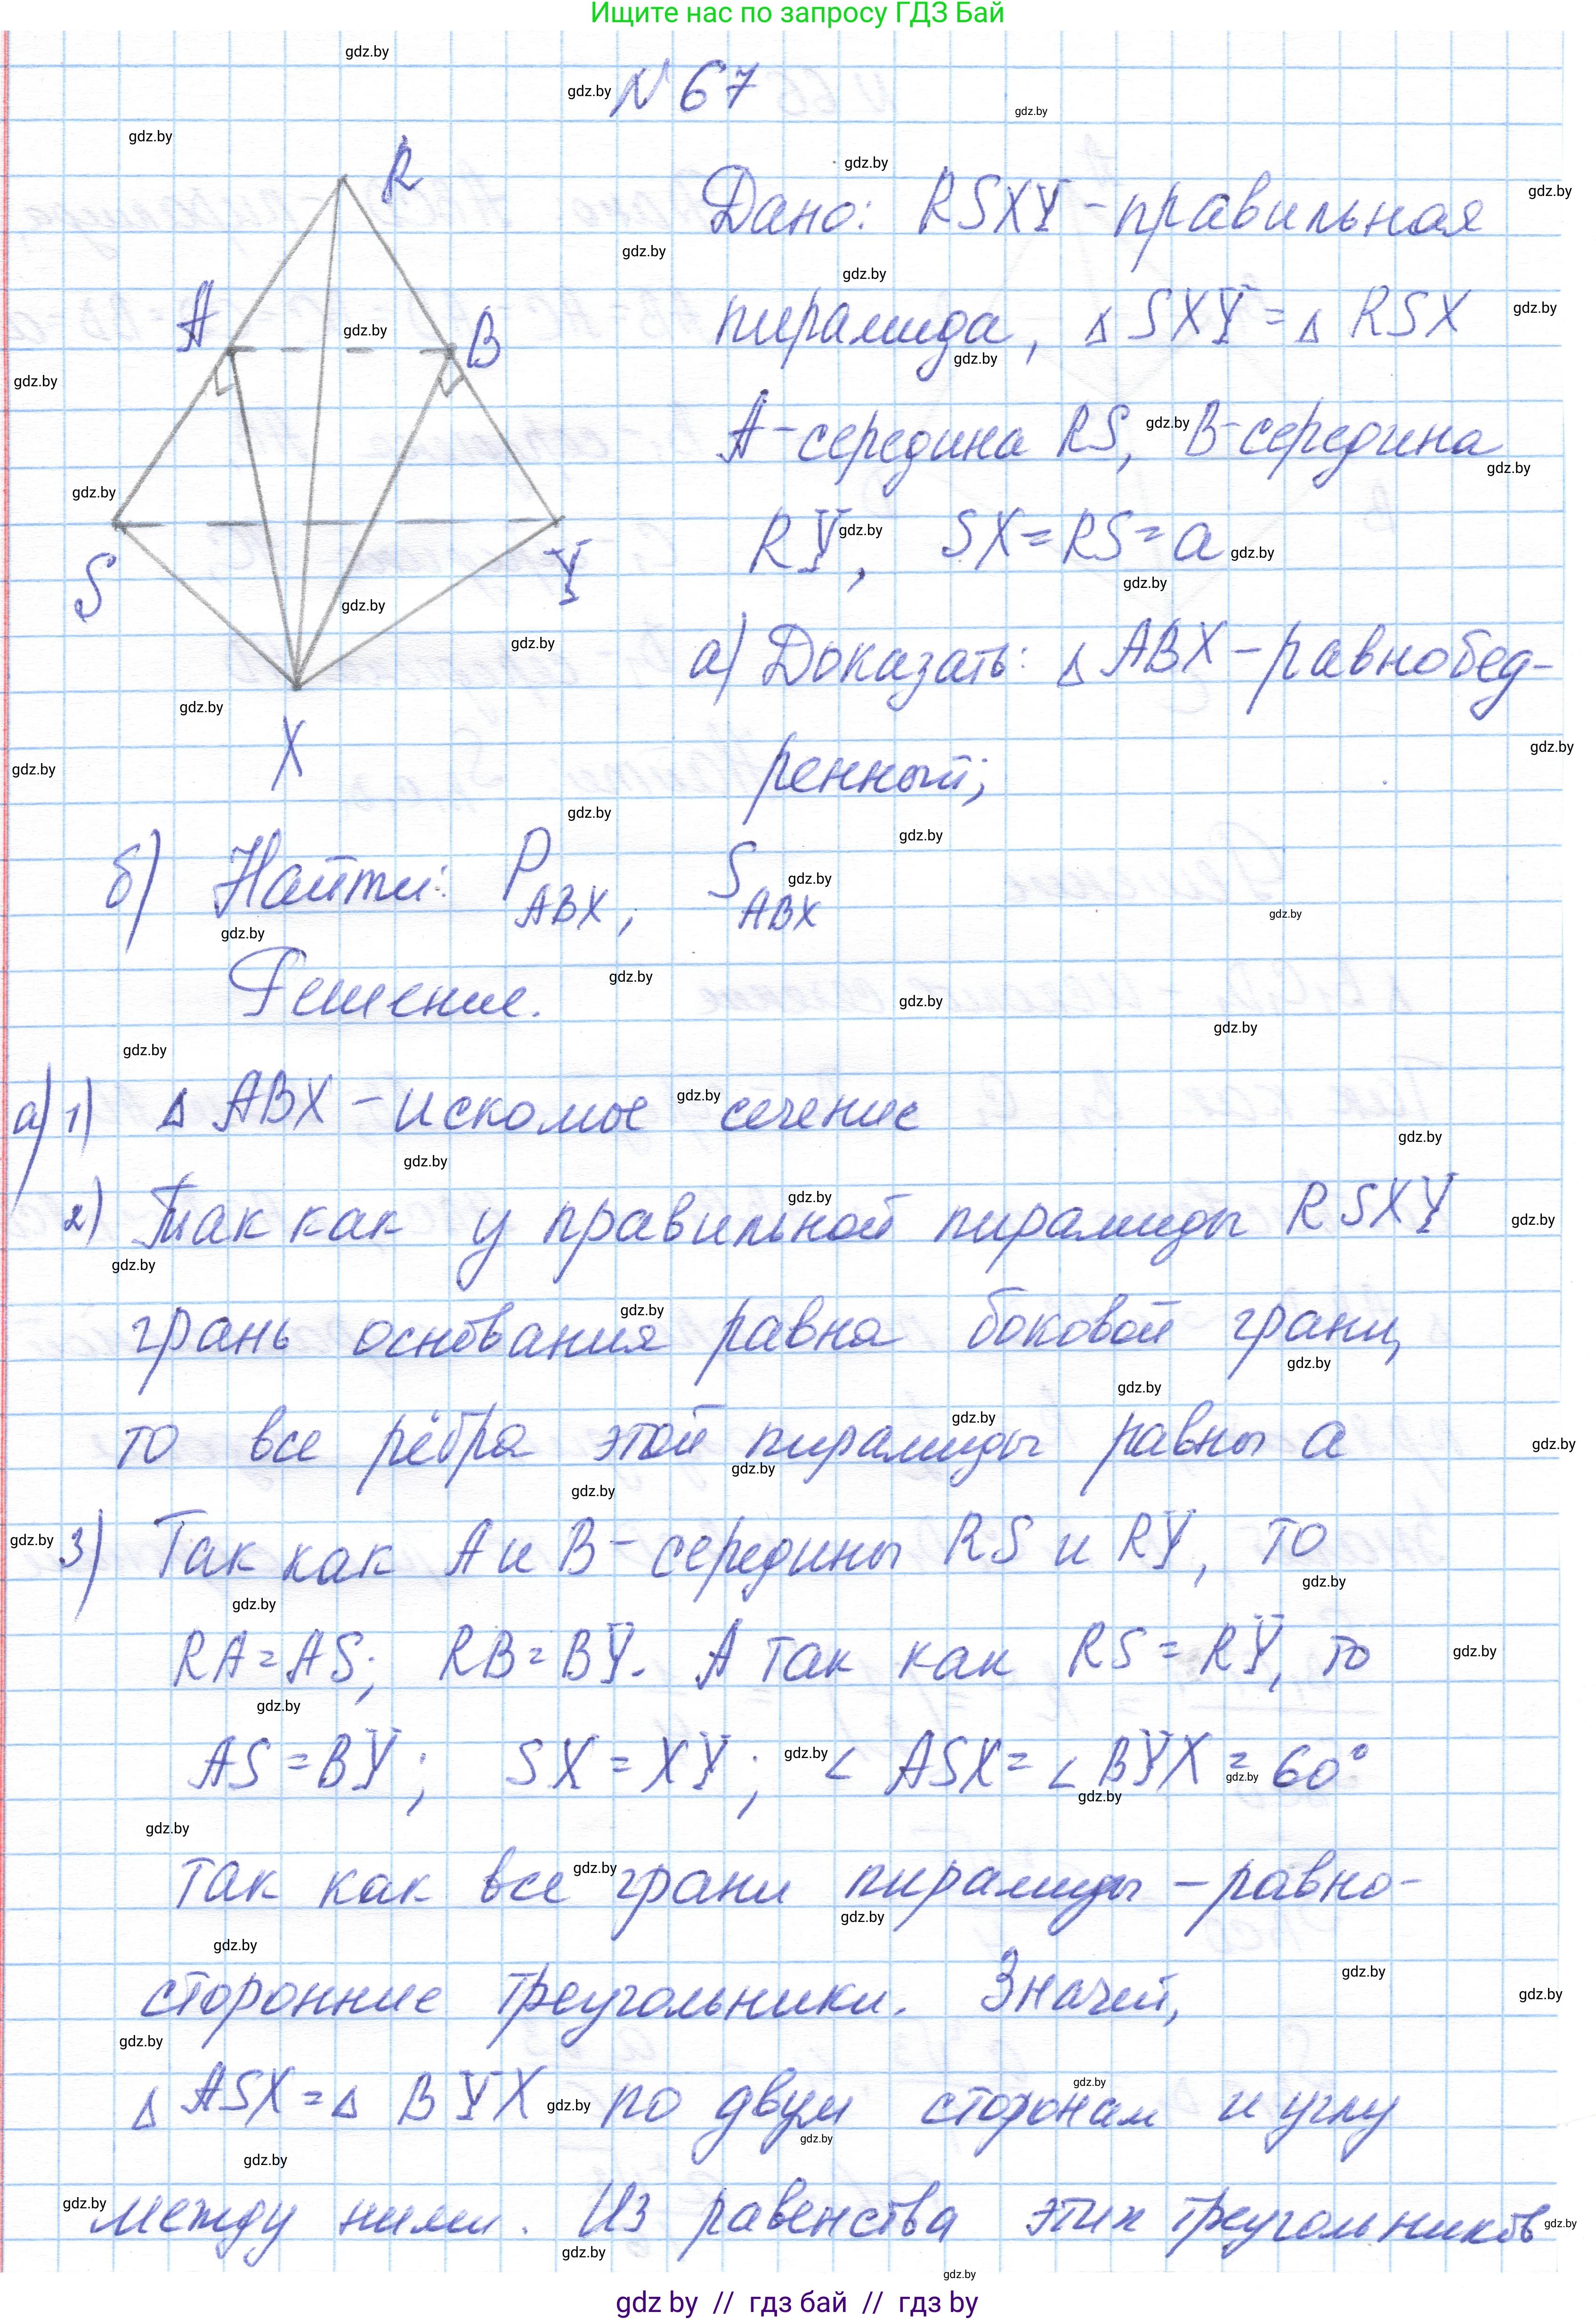 Ищите нас по запросу ГДЗ Бай
№ 67
R
A
B
S
Y
X
Дано: RSXY - правильная
пирамида, Δ SXY = Δ RSX
A - середина RS, B - середина
RY, SX = RS = a
а) Доказать: Δ ABX - равнобед-
ренный;
б) Найти: P ABX, S ABX
Решение.
а) 1) Δ ABX - искомое сечение
2) Так как у правильной пирамиды RSXY
грань основания равна боковой грани,
то все рёбра этой пирамиды равны a
3) Так как A и B - середины RS и RY, то
RA = AS; RB = BY. А так как RS = RY, то
AS = BY; SX = XY; ∠ ASX = ∠ BYX = 60°
так как все грани пирамиды - равно-
сторонние треугольники. Значит,
Δ ASX = Δ BYX по двум сторонам и углу
между ними. Из равенства этих треугольников
gdz by // гдз бай // гдз by